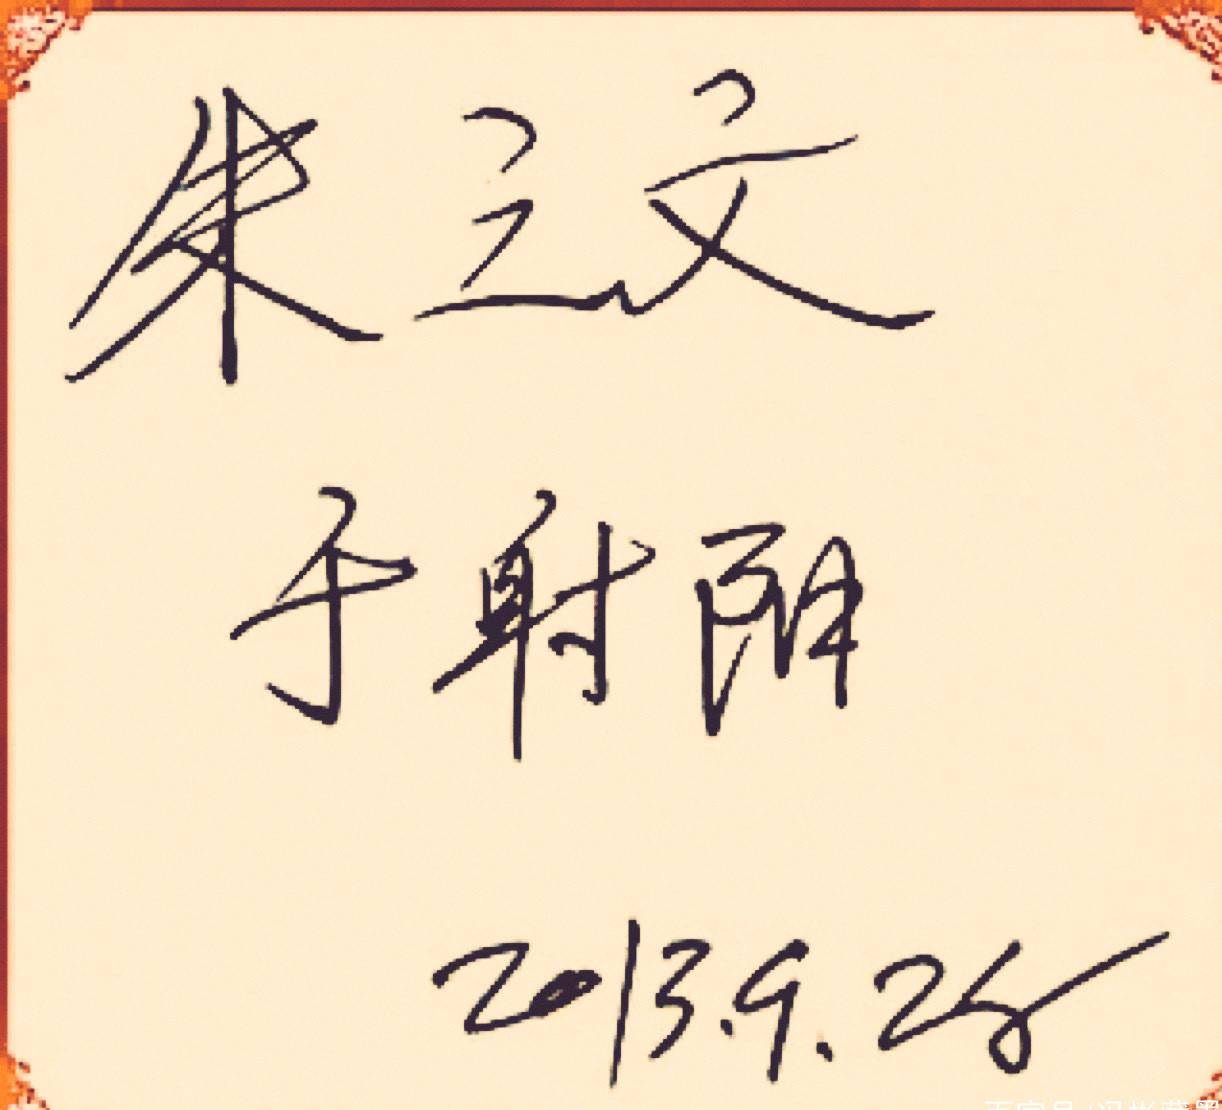 朱立文
于射阳
2013.9.28